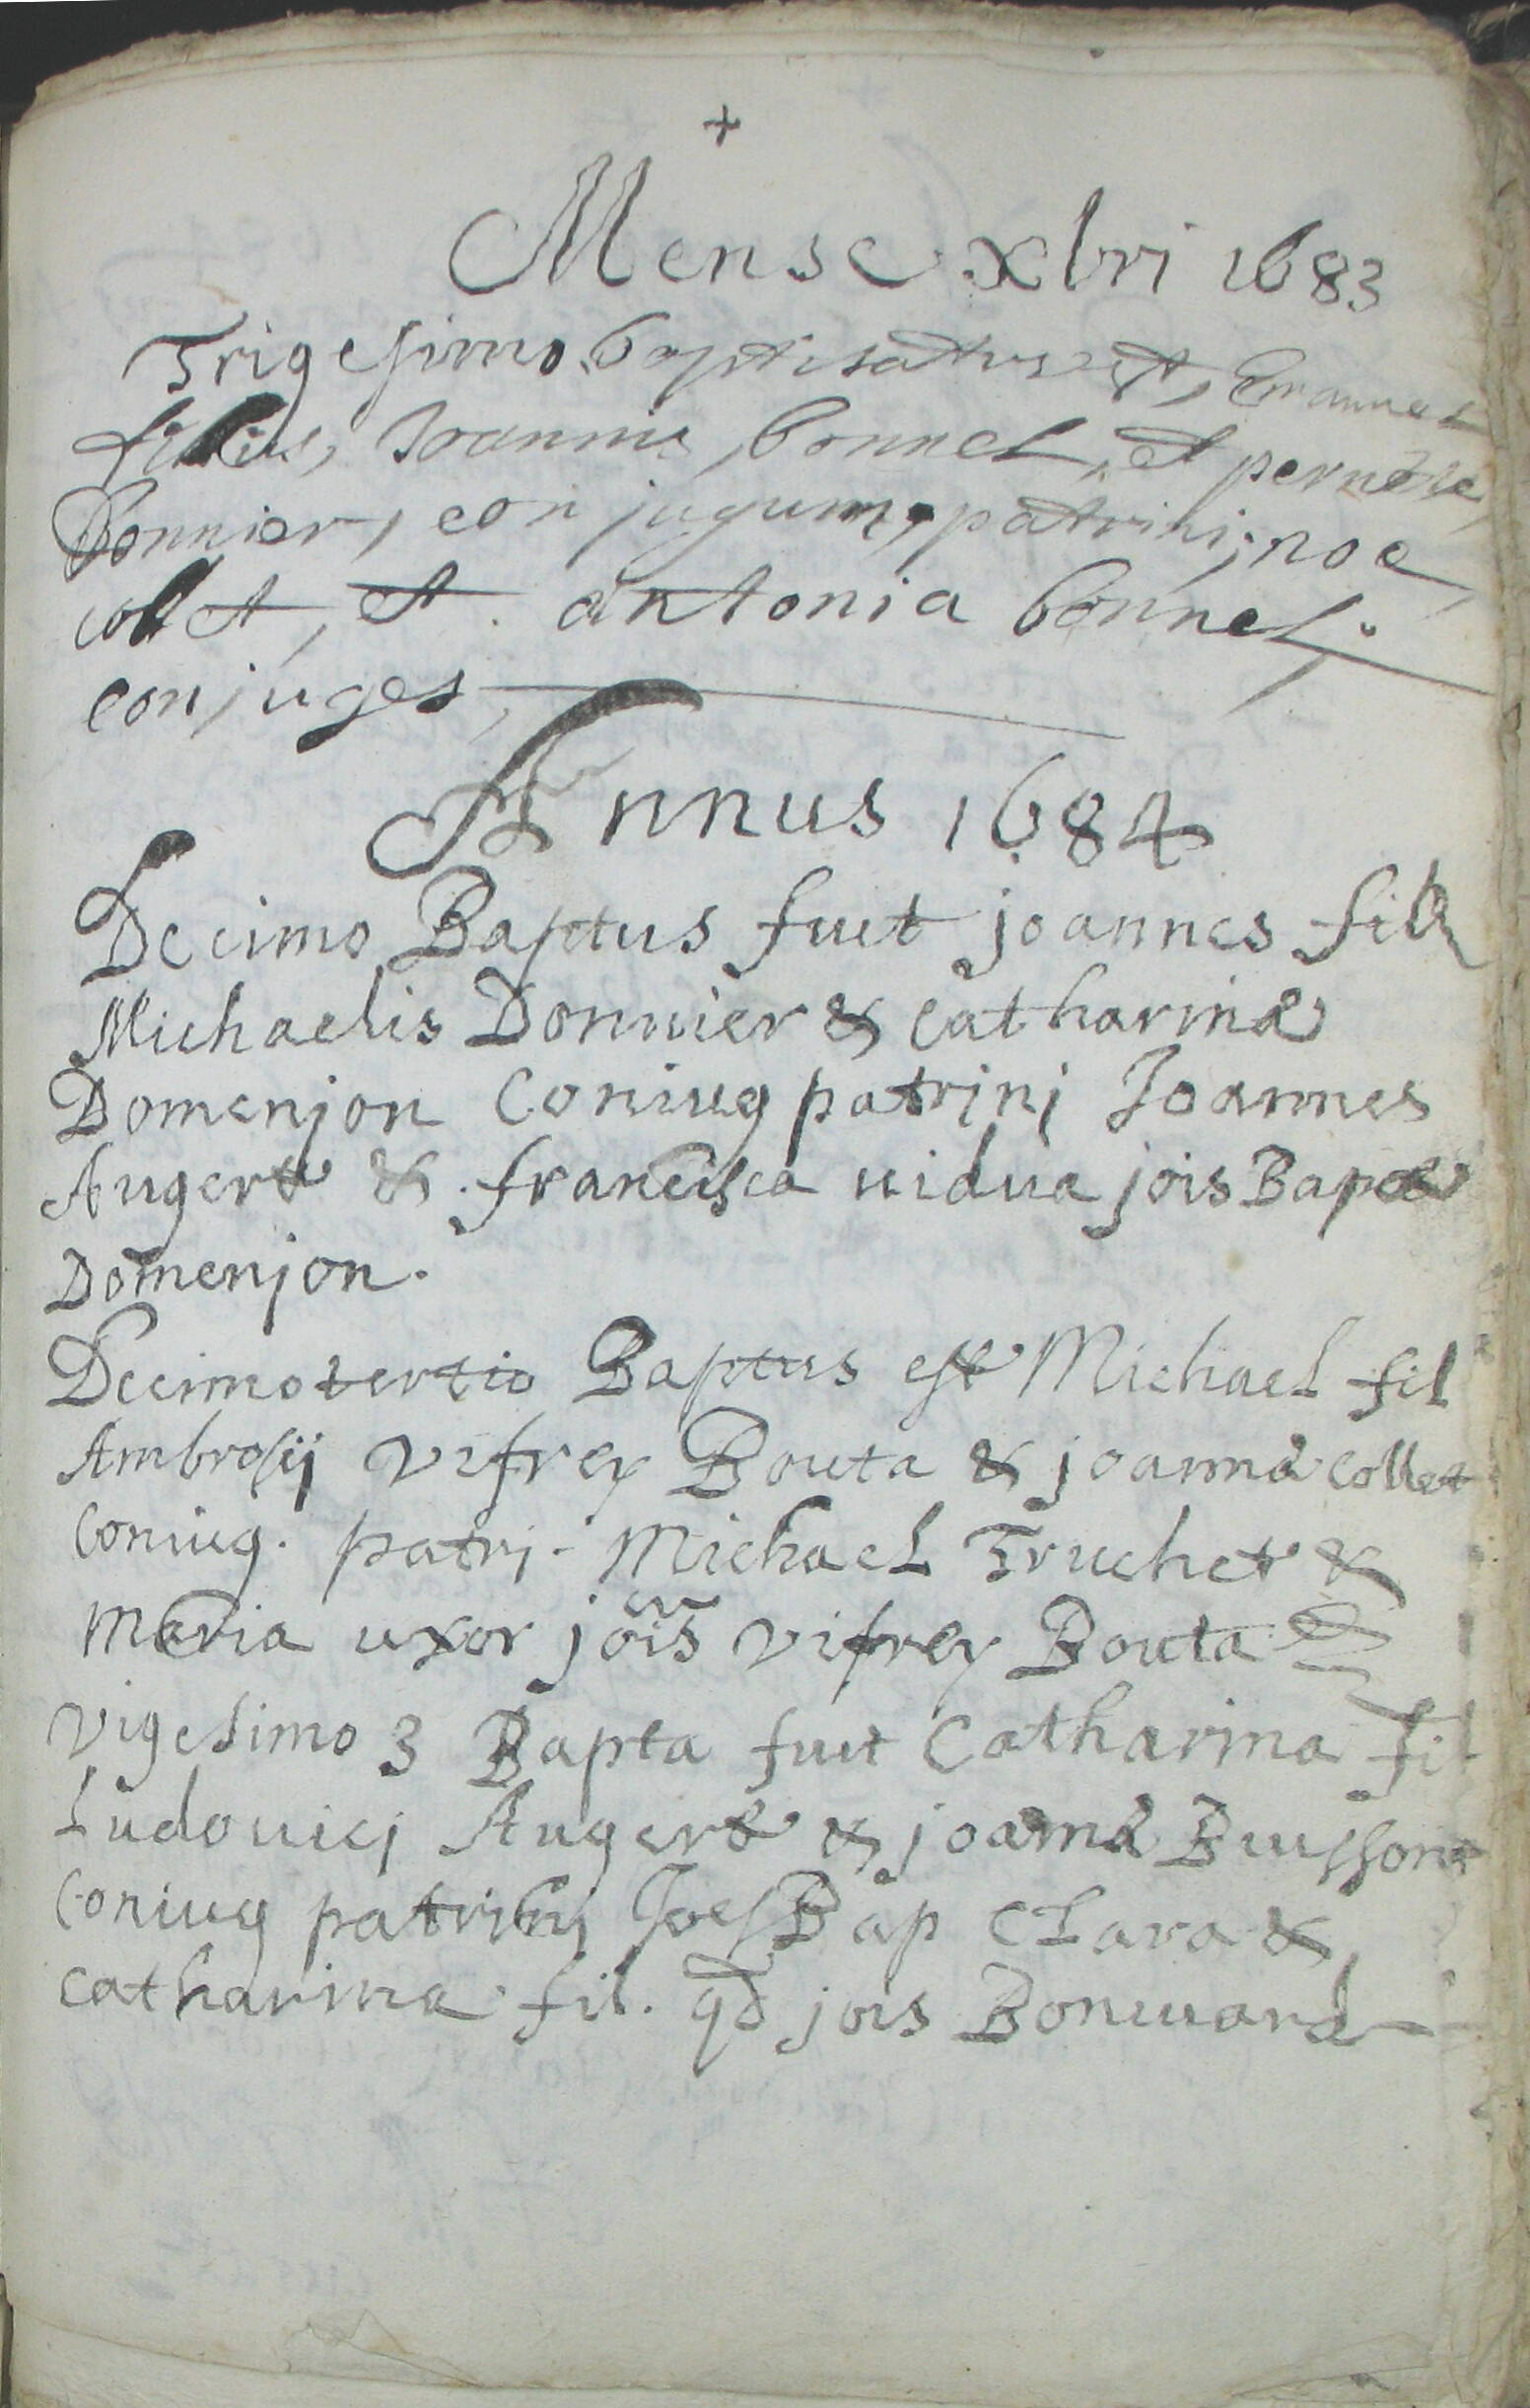 +
Mense xbri 1683
Trigesimo baptisatus est, Emanuel
filius, Joannis, bonnel, et pernette,
Donnier, conjugum, patrini, noe
collet, et. antonia bonnel.
conjuges,
Annus 1684
Decimo Baptus fuit joannes fil
Michaelis Donnier & Catharinæ
Domenjon Coniug patrinj Joannes
Augert & francisca uidua jois Bapæ
Domenjon.
Decimotertio Baptus est Michael fil
Ambrosij vifrey Bouta & joannæ Collet
Coniug. patrj. Michael Truchet &
Maria uxor jois vifrey Bouta
Vigesimo 3 Bapta fuit Catharina fil
Ludouicj Augert & joannæ Buisson
Coniug patrinj Joes Bap Clara &
Catharina fil. qd jois Bonnuard